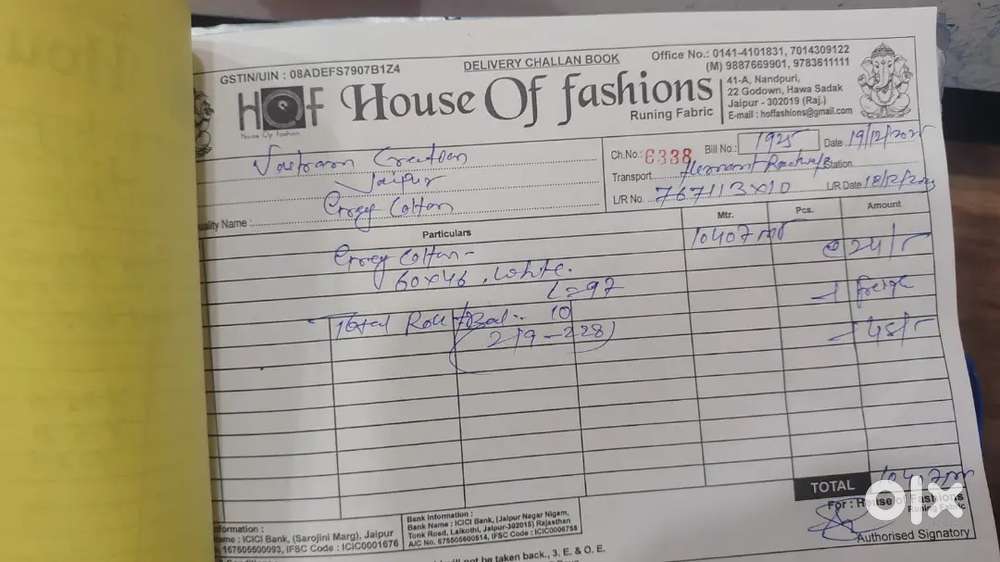 GSTIN/UIN : 08ADEFS7907B1Z4
DELIVERY CHALLAN BOOK
Office No.: 0141-4101831, 7014309122
(M) 9887669901, 9783611111
HOF
House Of fashion
House Of fashions
Runing Fabric
41-A, Nandpuri,
22 Godown, Hawa Sadak
Jaipur - 302019 (Raj.)
E-mail : hoffashions@gmail.com
Creation
Jaipur
Cotton
uality Name :
Ch.No.: 6338 Bill No.: 1925 Date 19/12/2025
Transport Station
L/R No. 767113x10 L/R Date 18/12/2025
Particulars Mtr. Pcs. Amount
Cotton - 10407 @ 24/-
60x46, white.
L=97
Total Roll 10
(219-228) 48/-
TOTAL
For : House of Fashions
Authorised Signatory
formation :
ame : ICICI Bank, (Sarojini Marg), Jaipur
167505500093, IFSC Code : ICIC0001676
Bank Information :
Bank Name : ICICI Bank, (Jaipur Nagar Nigam,
Tonk Road, Lalkothi, Jaipur-302015) Rajasthan
A/C No. 675505600514, IFSC Code : ICIC0006755
will not be taken back., 3. E. & O. E.
olx